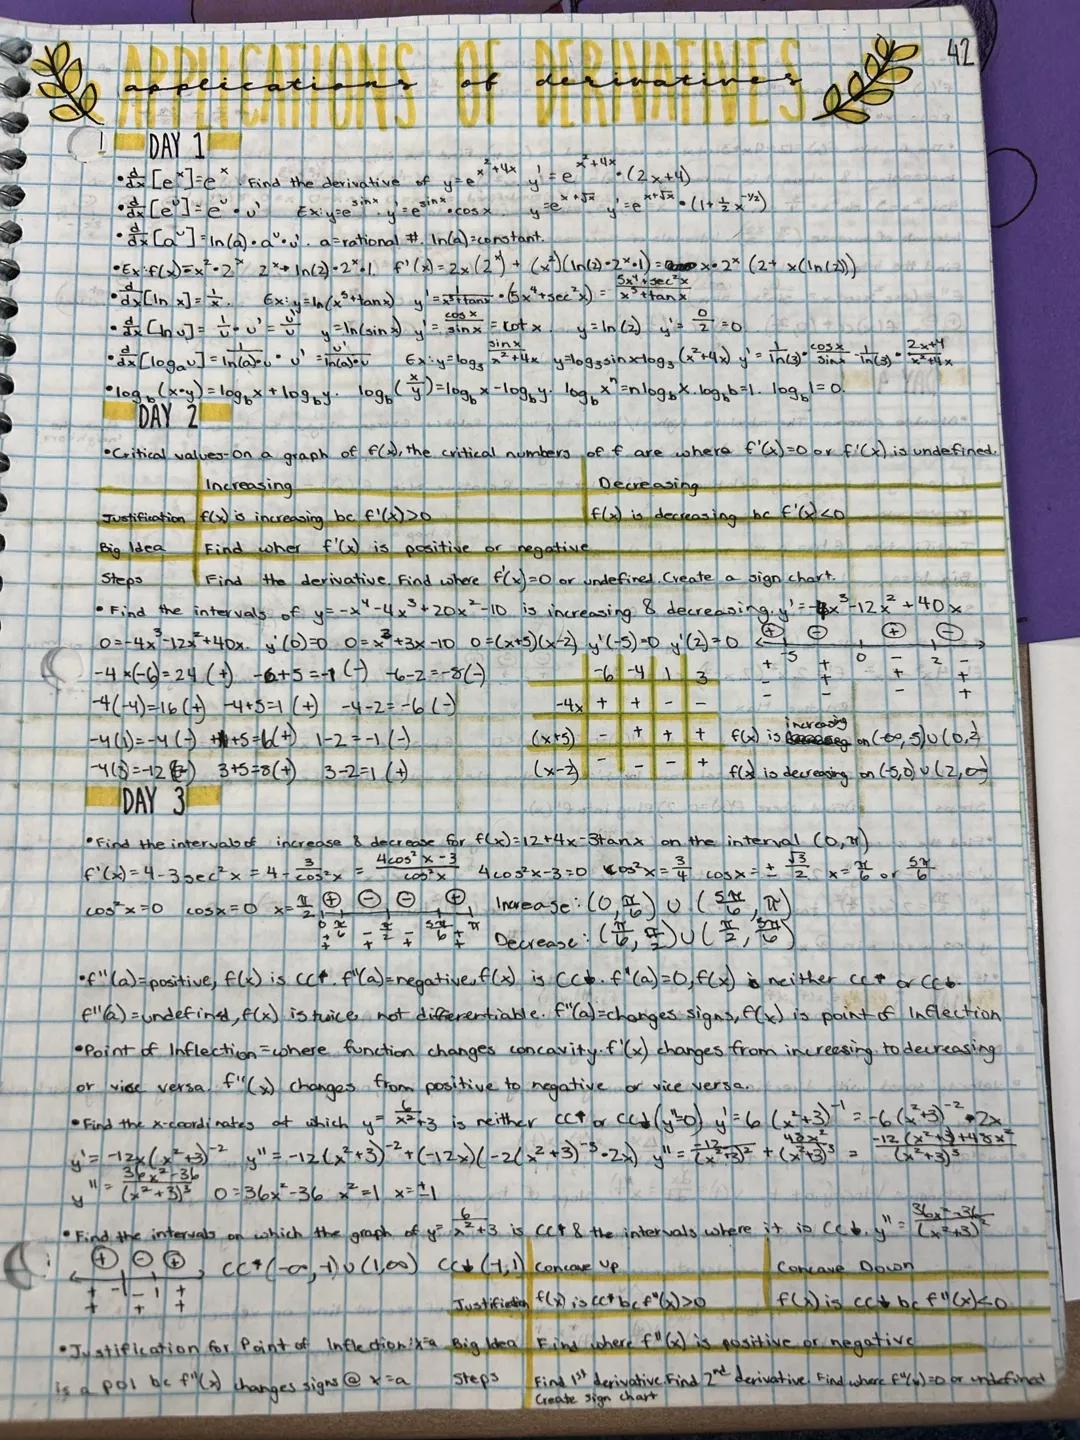 42
APPLICATIONS OF DERIVATIVES
applications of derivatives
! DAY 1
• d/dx [e^x]=e^x. Find the derivative of y=e^(x²+4x) y'=e^(x²+4x)•(2x+4)
• d/dx [e^u]=e^u•u' Ex: y=e^(sinx). y'=e^(sinx)•cosx. y=e^(x+√x) y'=e^(x+√x)•(1+½x^(-1/2))
• d/dx [a^u]=ln(a)•a^u•u'. a=rational #. ln(a)=constant.
•Ex: f(x)=x²•2^x 2^x→ln(2)•2^x•1 f'(x)=2x(2^x)+(x²)(ln(2)•2^x•1)= x•2^x(2+x(ln(2)))
• d/dx [ln x]=1/x. Ex: y=ln(x⁵+tanx) y'=1/(x⁵+tanx)•(5x⁴+sec²x)=(5x⁴+sec²x)/(x⁵+tanx)
• d/dx [lnu]=1/u•u'=u'/u y=ln(sinx) y'=cosx/sinx=cotx. y=ln(2) y'=0/2=0
• d/dx [log_a u]=1/(ln(a)•u)•u'=u'/(ln(a)•u) Ex: y=log₃ sinx/(x²+4x) y=log₃sinx-log₃(x²+4x) y'=1/ln(3)•cosx/sinx-1/ln(3)•(2x+4)/(x²+4x)
•log_b(x•y)=log_b x+log_b y. log_b(x/y)=log_b x-log_b y. log_b x^n=nlog_b x. log_b b=1. log_b 1=0.
DAY 2
•Critical values-On a graph of f(x), the critical numbers of f are where f'(x)=0 or f'(x) is undefined.
Increasing Decreasing
Justification f(x) is increasing bc f'(x)>0 f(x) is decreasing bc f'(x)<0
Big Idea Find wher f'(x) is positive or negative
Steps Find the derivative. Find where f'(x)=0 or undefined. Create a sign chart.
• Find the intervals of y=-x⁴-4x³+20x²-10 is increasing & decreasing. y'=-4x³-12x²+40x
0=-4x³-12x²+40x. y'(0)=0 0=x²+3x-10 0=(x+5)(x-2) y'(-5)=0 y'(2)=0 + - + -
-5 0 2
+ + - -
- + + +
- - - +
-4×(-6)=24 (+) -6+5=-1 (-) -6-2=-8(-) -6 -4 1 3
-4(-4)=16(+) -4+5=1 (+) -4-2=-6(-) -4x + + - -
-4(1)=-4(-) 1+5=6(+) 1-2=-1(-) (x+5) - + + + f(x) is increasing on (-∞,5)∪(0,2)
-4(3)=-12(-) 3+5=8(+) 3-2=1(+) (x-2) - - - + f(x) is decreasing on (-5,0)∪(2,∞)
DAY 3
•Find the intervals of increase & decrease for f(x)=12+4x-3tanx on the interval (0,π)
f'(x)=4-3sec²x=4-3/cos²x=(4cos²x-3)/cos²x 4cos²x-3=0 cos²x=3/4 cosx=±√3/2 x=π/6 or 5π/6
cos²x=0 cosx=0 x=π/2 + - - + Increase: (0,π/6)∪(5π/6,π)
0 π/6 π/2 5π/6 π
+ - - +
+ + + + Decrease: (π/6,π/2)∪(π/2,5π/6)
•f''(a)=positive, f(x) is CC↑. f''(a)=negative, f(x) is CC↓. f''(a)=0, f(x) is neither cc↑ or CC↓.
f''(a)=undefined, f(x) is twice not differentiable. f''(a)=changes signs, f(x) is point of Inflection
•Point of Inflection=where function changes concavity. f'(x) changes from increesing to decreasing
or vice versa. f''(x) changes from positive to negative or vice versa.
•Find the x-coordinates at which y=6/(x²+3) is neither CC↑ or CC↓(y''=0) y'=6(x²+3)⁻¹=-6(x²+3)⁻²•2x
y'=-12x(x²+3)⁻² y''=-12(x²+3)⁻²+(-12x)(-2(x²+3)⁻³•2x) y''=-12/(x²+3)²+48x²/(x²+3)³=(-12(x²+3)+48x²)/(x²+3)³
y''=(36x²-36)/(x²+3)³ 0=36x²-36 x²=1 x=±1
•Find the intervals on which the graph of y=6/(x²+3) is CC↑ & the intervals where it is CC↓. y''=(36x²-36)/(x²+3)²
+ - + CC↑(-∞,-1)∪(1,∞) CC↓(-1,1) Concave Up Concave Down
-1 1
+ - +
+ + +
Justification f(x) is cc↑ bc f''(x)>0 f(x) is cc↓ bc f''(x)<0
•Justification for Point of Inflection: x=a Big Idea Find where f''(x) is positive or negative
is a POI bc f''(x) changes signs @ x=a Steps Find 1st derivative. Find 2nd derivative. Find where f''(x)=0 or undefined
Create sign chart